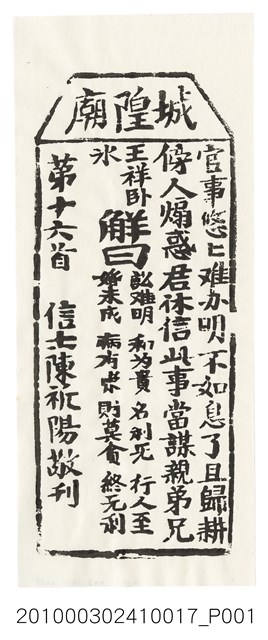 城隍廟
官事悠匕难办明不如息了且歸耕
傍人煽惑君休信此事當謀親弟兄
王祥卧
氷
解曰
訟难明 和为貴 名利死 行人至
婚未成 病有求 財莫貪 終无利
第十六首 信士陳祝陽敬刊
201000302410017_P001